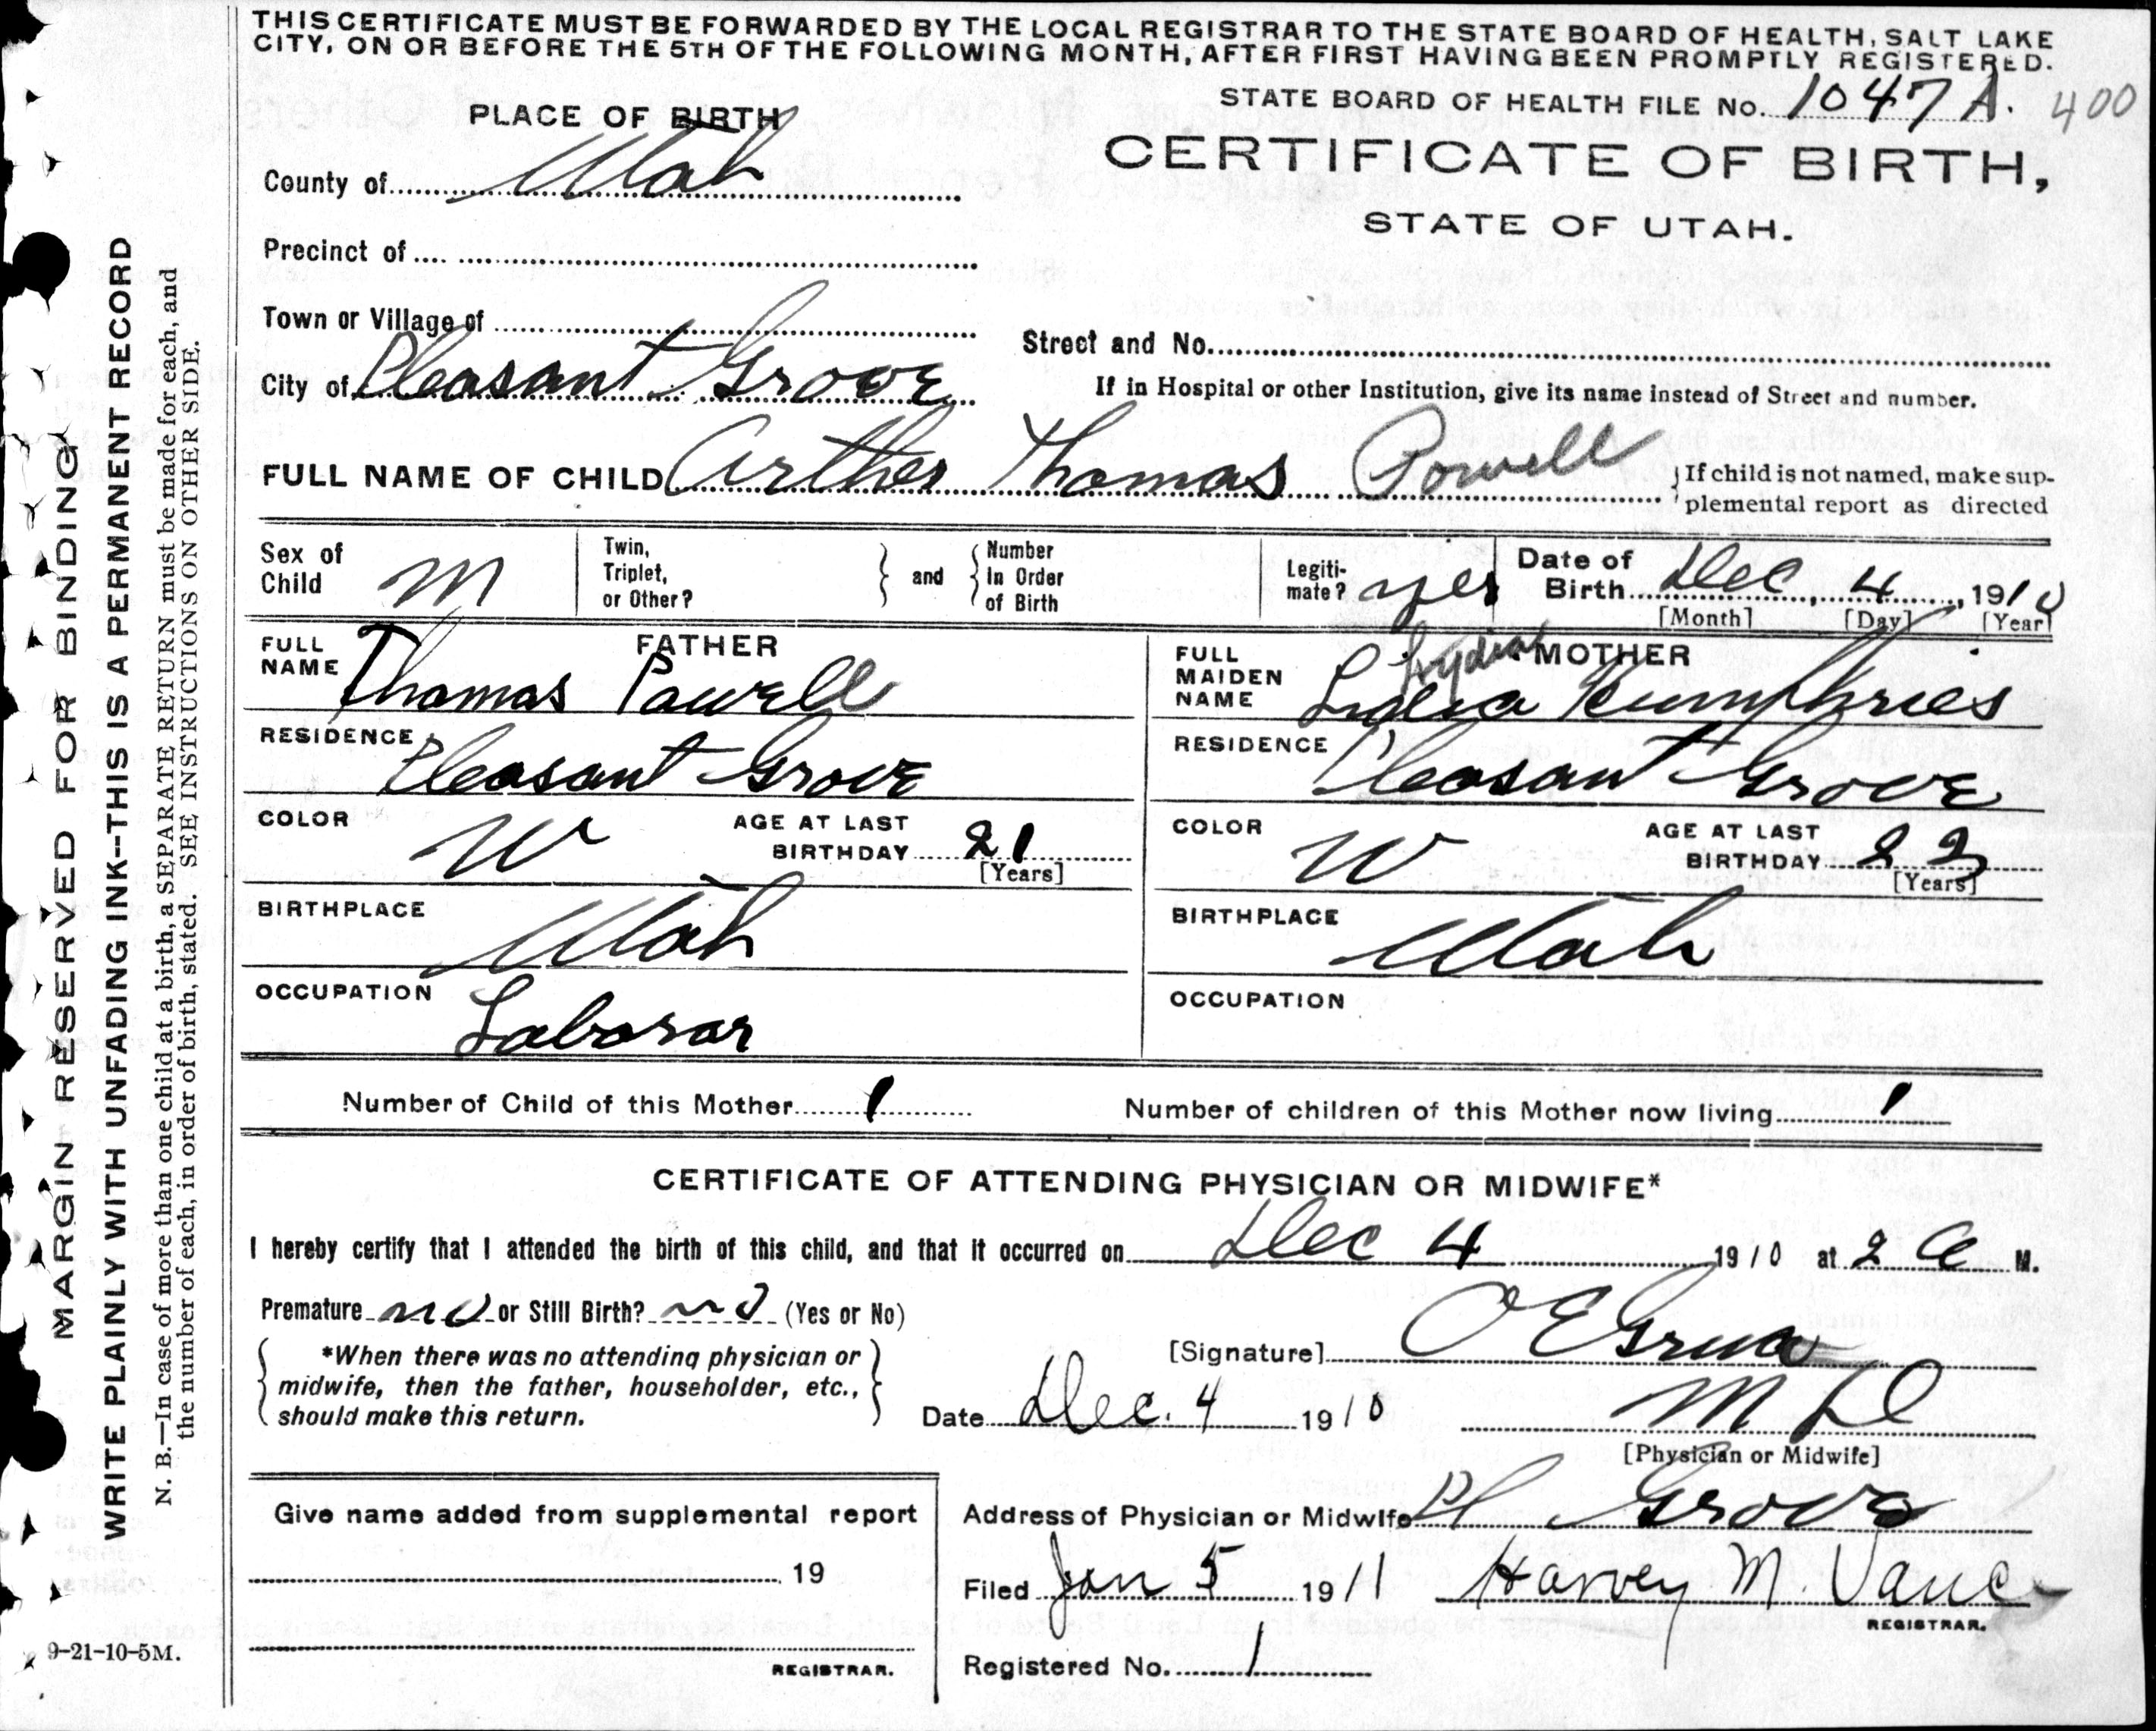 THIS CERTIFICATE MUST BE FORWARDED BY THE LOCAL REGISTRAR TO THE STATE BOARD OF HEALTH, SALT LAKE
CITY, ON OR BEFORE THE 5TH OF THE FOLLOWING MONTH, AFTER FIRST HAVING BEEN PROMPTLY REGISTERED.
STATE BOARD OF HEALTH FILE No. 1047 A. 400
PLACE OF BIRTH
CERTIFICATE OF BIRTH,
STATE OF UTAH.
County of Utah
Precinct of
Town or Village of
Street and No.
City of Pleasant Grove
If in Hospital or other Institution, give its name instead of Street and number.
FULL NAME OF CHILD Arther Thomas Powell
If child is not named, make sup-
plemental report as directed
Sex of
Child M
Twin,
Triplet,
or Other?
and
Number
In Order
of Birth
Legiti-
mate? yes
Date of
Birth Dec, 4, 1910
[Month] [Day] [Year]
FATHER
FULL
NAME Thomas Powell
RESIDENCE Pleasant Grove
COLOR W
AGE AT LAST
BIRTHDAY 21
[Years]
BIRTHPLACE Utah
OCCUPATION Laborar
MOTHER
Lydia
FULL
MAIDEN
NAME Lidia Humphries
RESIDENCE Pleasant Grove
COLOR W
AGE AT LAST
BIRTHDAY 22
[Years]
BIRTHPLACE Utah
OCCUPATION
Number of Child of this Mother 1
Number of children of this Mother now living 1
CERTIFICATE OF ATTENDING PHYSICIAN OR MIDWIFE*
I hereby certify that I attended the birth of this child, and that it occurred on Dec 4 1910 at 2 a M.
Premature no or Still Birth? no (Yes or No)
*When there was no attending physician or
midwife, then the father, householder, etc.,
should make this return.
[Signature] O E Grua
Date Dec. 4 1910
M D
[Physician or Midwife]
Give name added from supplemental report
19
REGISTRAR.
Address of Physician or Midwife Pl Grove
Filed Jan 5 1911 Harvey M. Vance
REGISTRAR.
Registered No. 1
9-21-10-5M.
MARGIN RESERVED FOR BINDING
WRITE PLAINLY WITH UNFADING INK--THIS IS A PERMANENT RECORD
N. B.—In case of more than one child at a birth, a SEPARATE RETURN must be made for each, and
the number of each, in order of birth, stated. SEE INSTRUCTIONS ON OTHER SIDE.